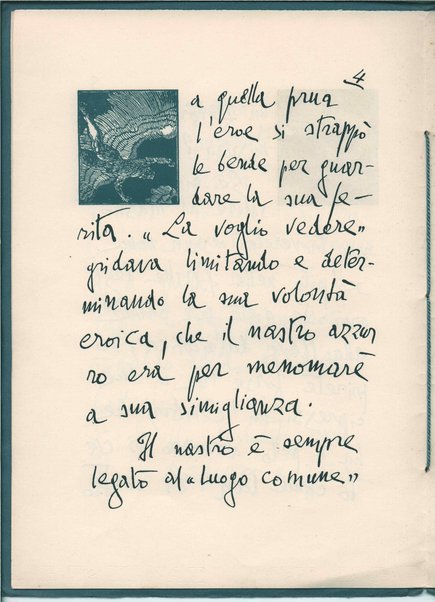 4
a quella prua
l'eroe si strappò
le bende per guar-
dare la sua fe-
rita. "La voglio vedere"
gridava limitando e deter-
minando la sua volontà
eroica, che il nastro azzur
ro era per menomare
a sua simiglianza.
Il nastro è sempre
legato al "luogo comune"